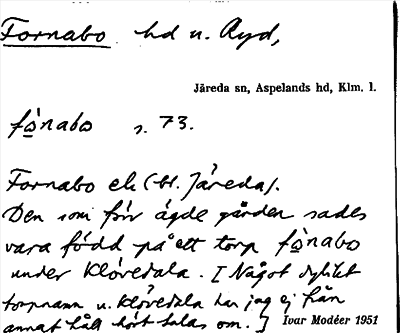 Fornabo hd u. Ryd,
Järeda sn, Aspelands hd, Klm. l.
fònabo s. 73.
Fornabo ek (bl. Järeda).
Den som förr ägde gården sades
vara född på ett torp fònabo
under Klövedala. [Något dylikt
torpnamn u. Klövedala har jag ej från
annat håll hört talas om.] Ivar Modéer 1951